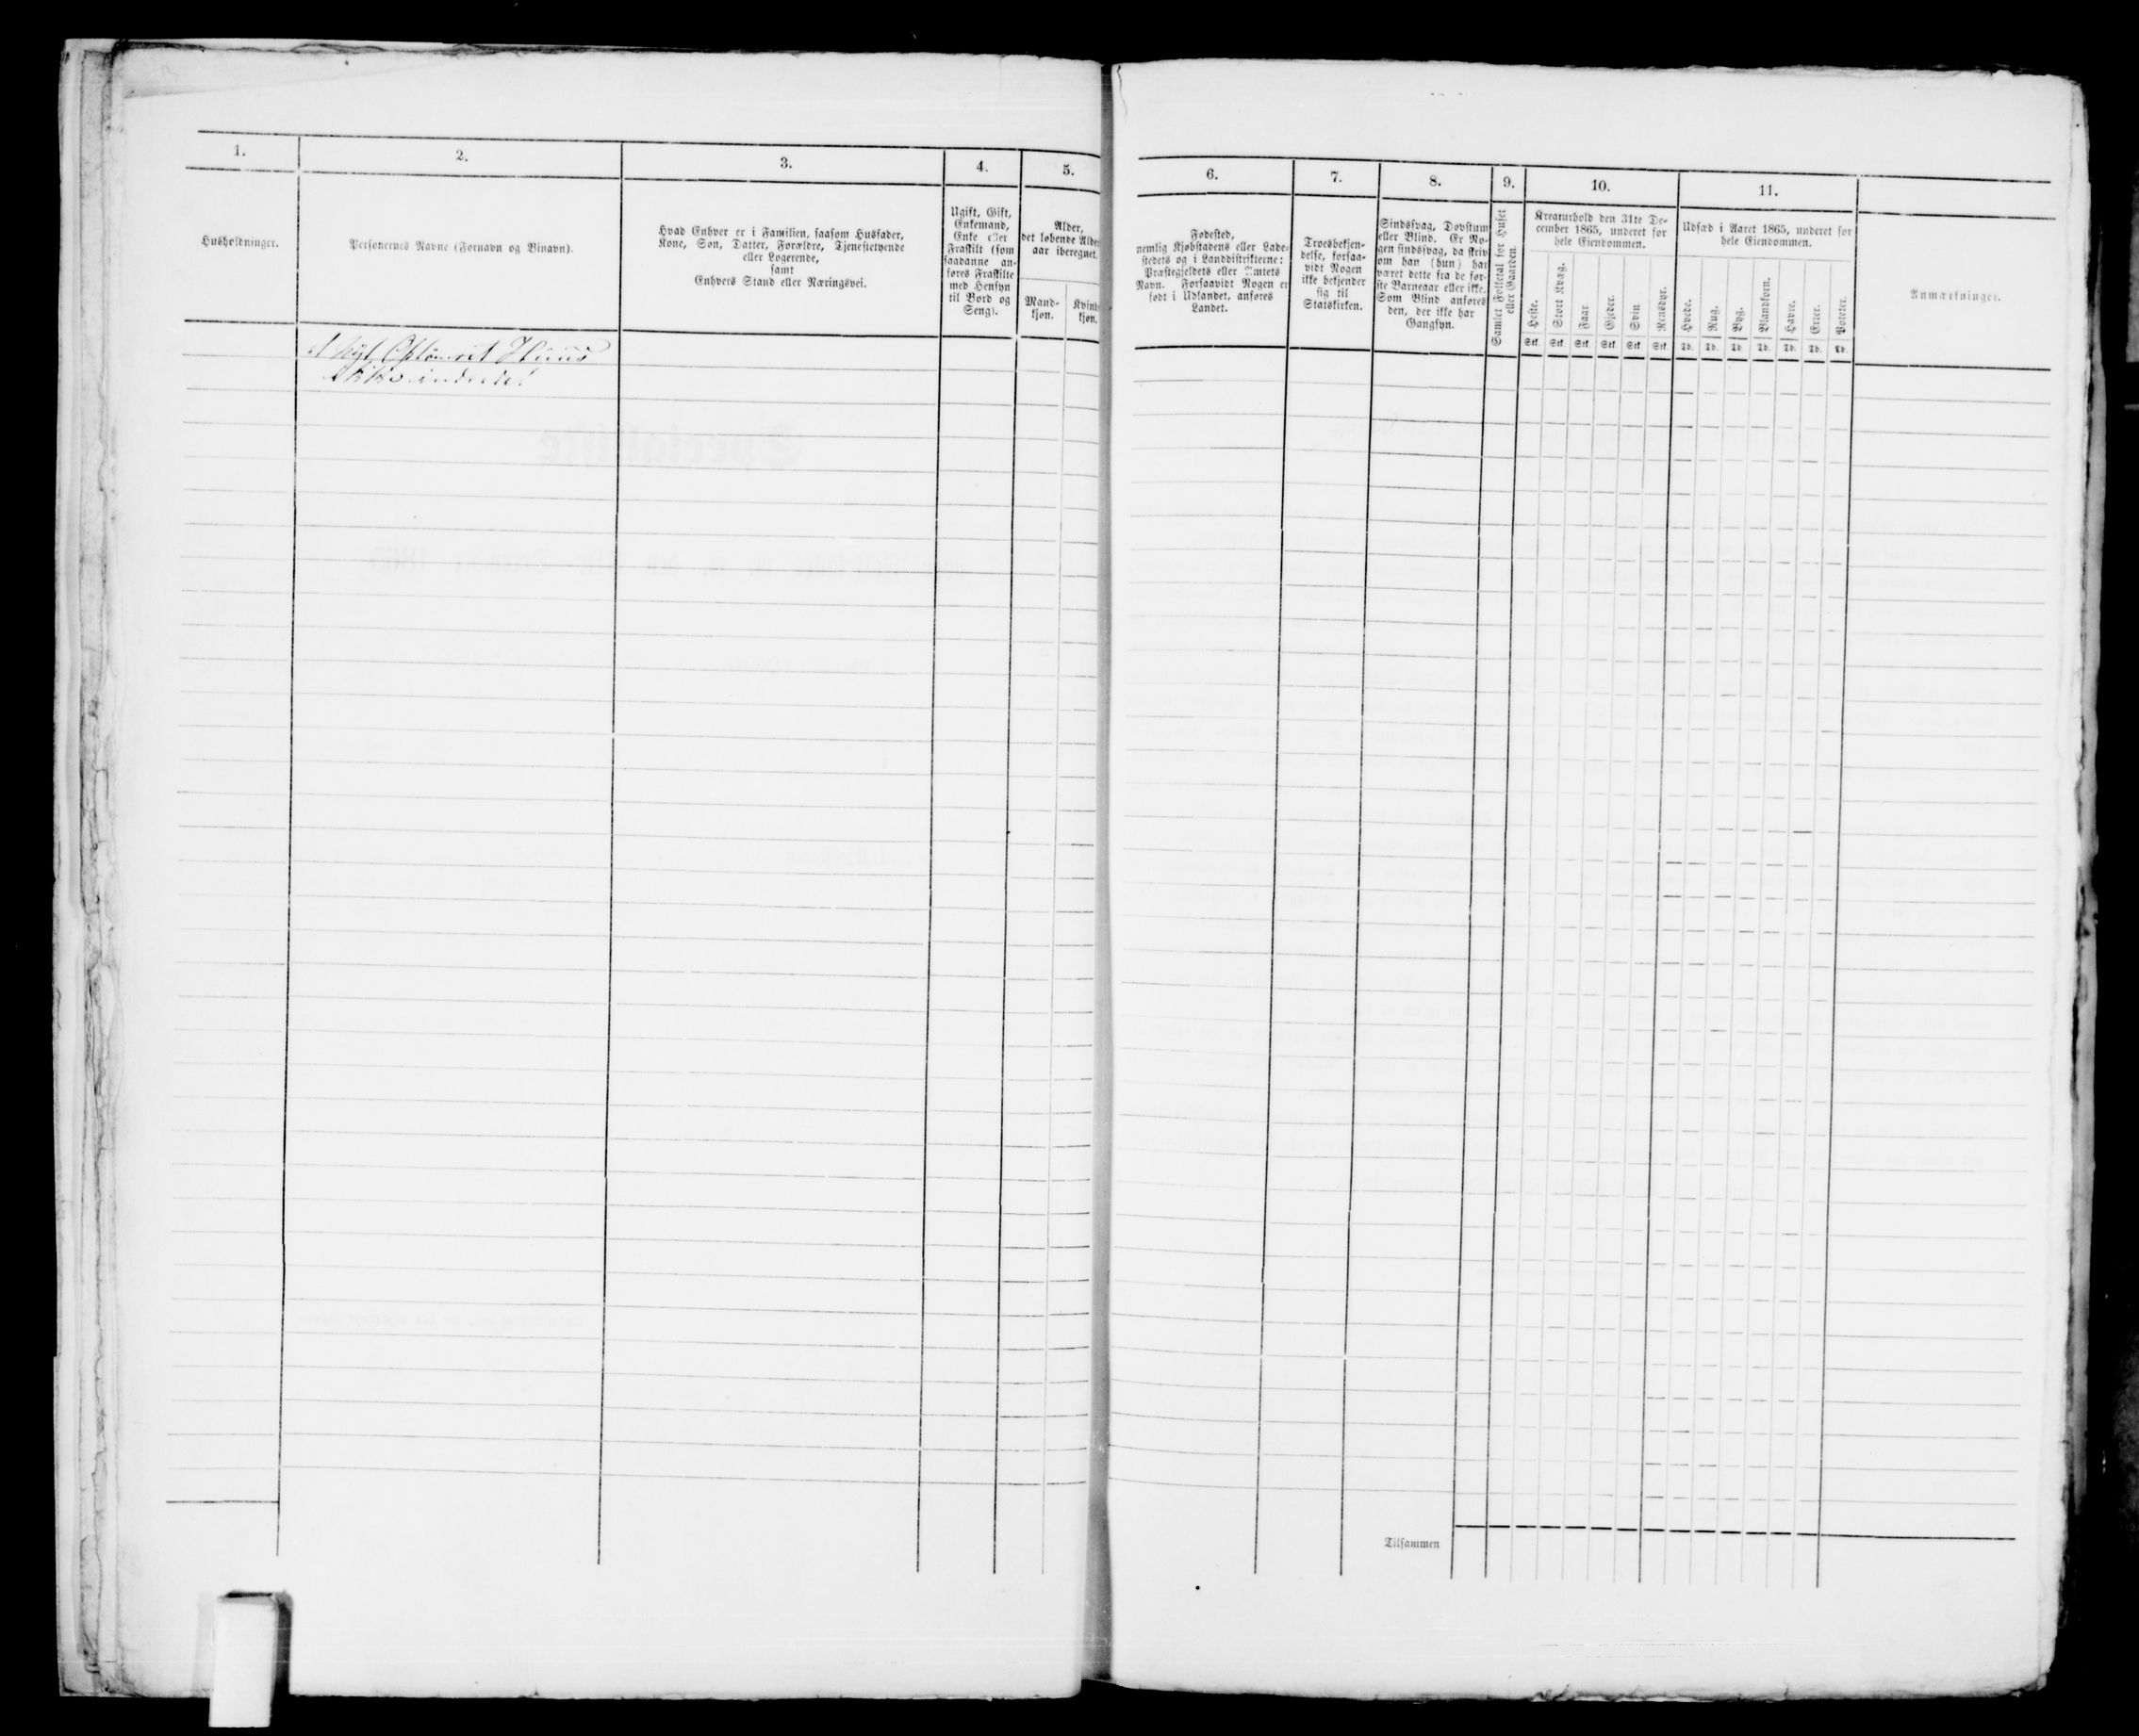 1.
2.
3.
4.
5.
Husholdninger.
Personernes Navne (Fornavn og Binavn).
Hvad Enhver er i Familien, saasom Husfader,
Kone, Søn, Datter, Forældre, Tjenestetyende
eller Logerende,
samt
Enhvers Stand eller Næringsvei.
Ugift, Gift,
Enkemand,
Enke eller
Fraskilt (som
saadanne an-
føres Fraskilte
med Hensyn
til Bord og
Seng).
Alder,
det løbende Alders
aar iberegnet.
Mand-
kjøn.
Kvinde
kjøn.
Nÿt Optömret Huus
Ikke indredet
6.
7.
8.
9.
10.
11.
Fødested,
nemlig Kjøbstadens eller Lade-
stedets og i Landdistrikterne:
Præstegjeldets eller Amtets
Navn. Forsaavidt Nogen er
født i Udlandet, anføres
Landet.
Troesbekjen-
delse, forsaa-
vidt Nogen
ikke bekjender
sig til
Statskirken.
Sindssvag, Døvstum
eller Blind. Er No-
gen sindssvag, da skriv
om han (hun) har
været dette fra de før-
ste Barneaar eller ikke.
Som Blind anføres
den, der ikke har
Gangsyn.
Samlet Folketal for Huset
eller Gaarden.
Kreaturhold den 31te De-
cember 1865, underet for
hele Eiendommen.
Heste.
Stort Kvæg.
Faar
Gjeder.
Svin
Rensdyr.
Stk. Stk. Stk. Stk. Stk. Stk.
Udsæd i Aaret 1865, underet for
hele Eiendommen.
Hvede.
Rug.
Byg.
Blandkorn.
Havre.
Erter.
Poteter.
Td. Td. Td. Td. Td. Td. Td.
Anmærkninger.
Tilsammen